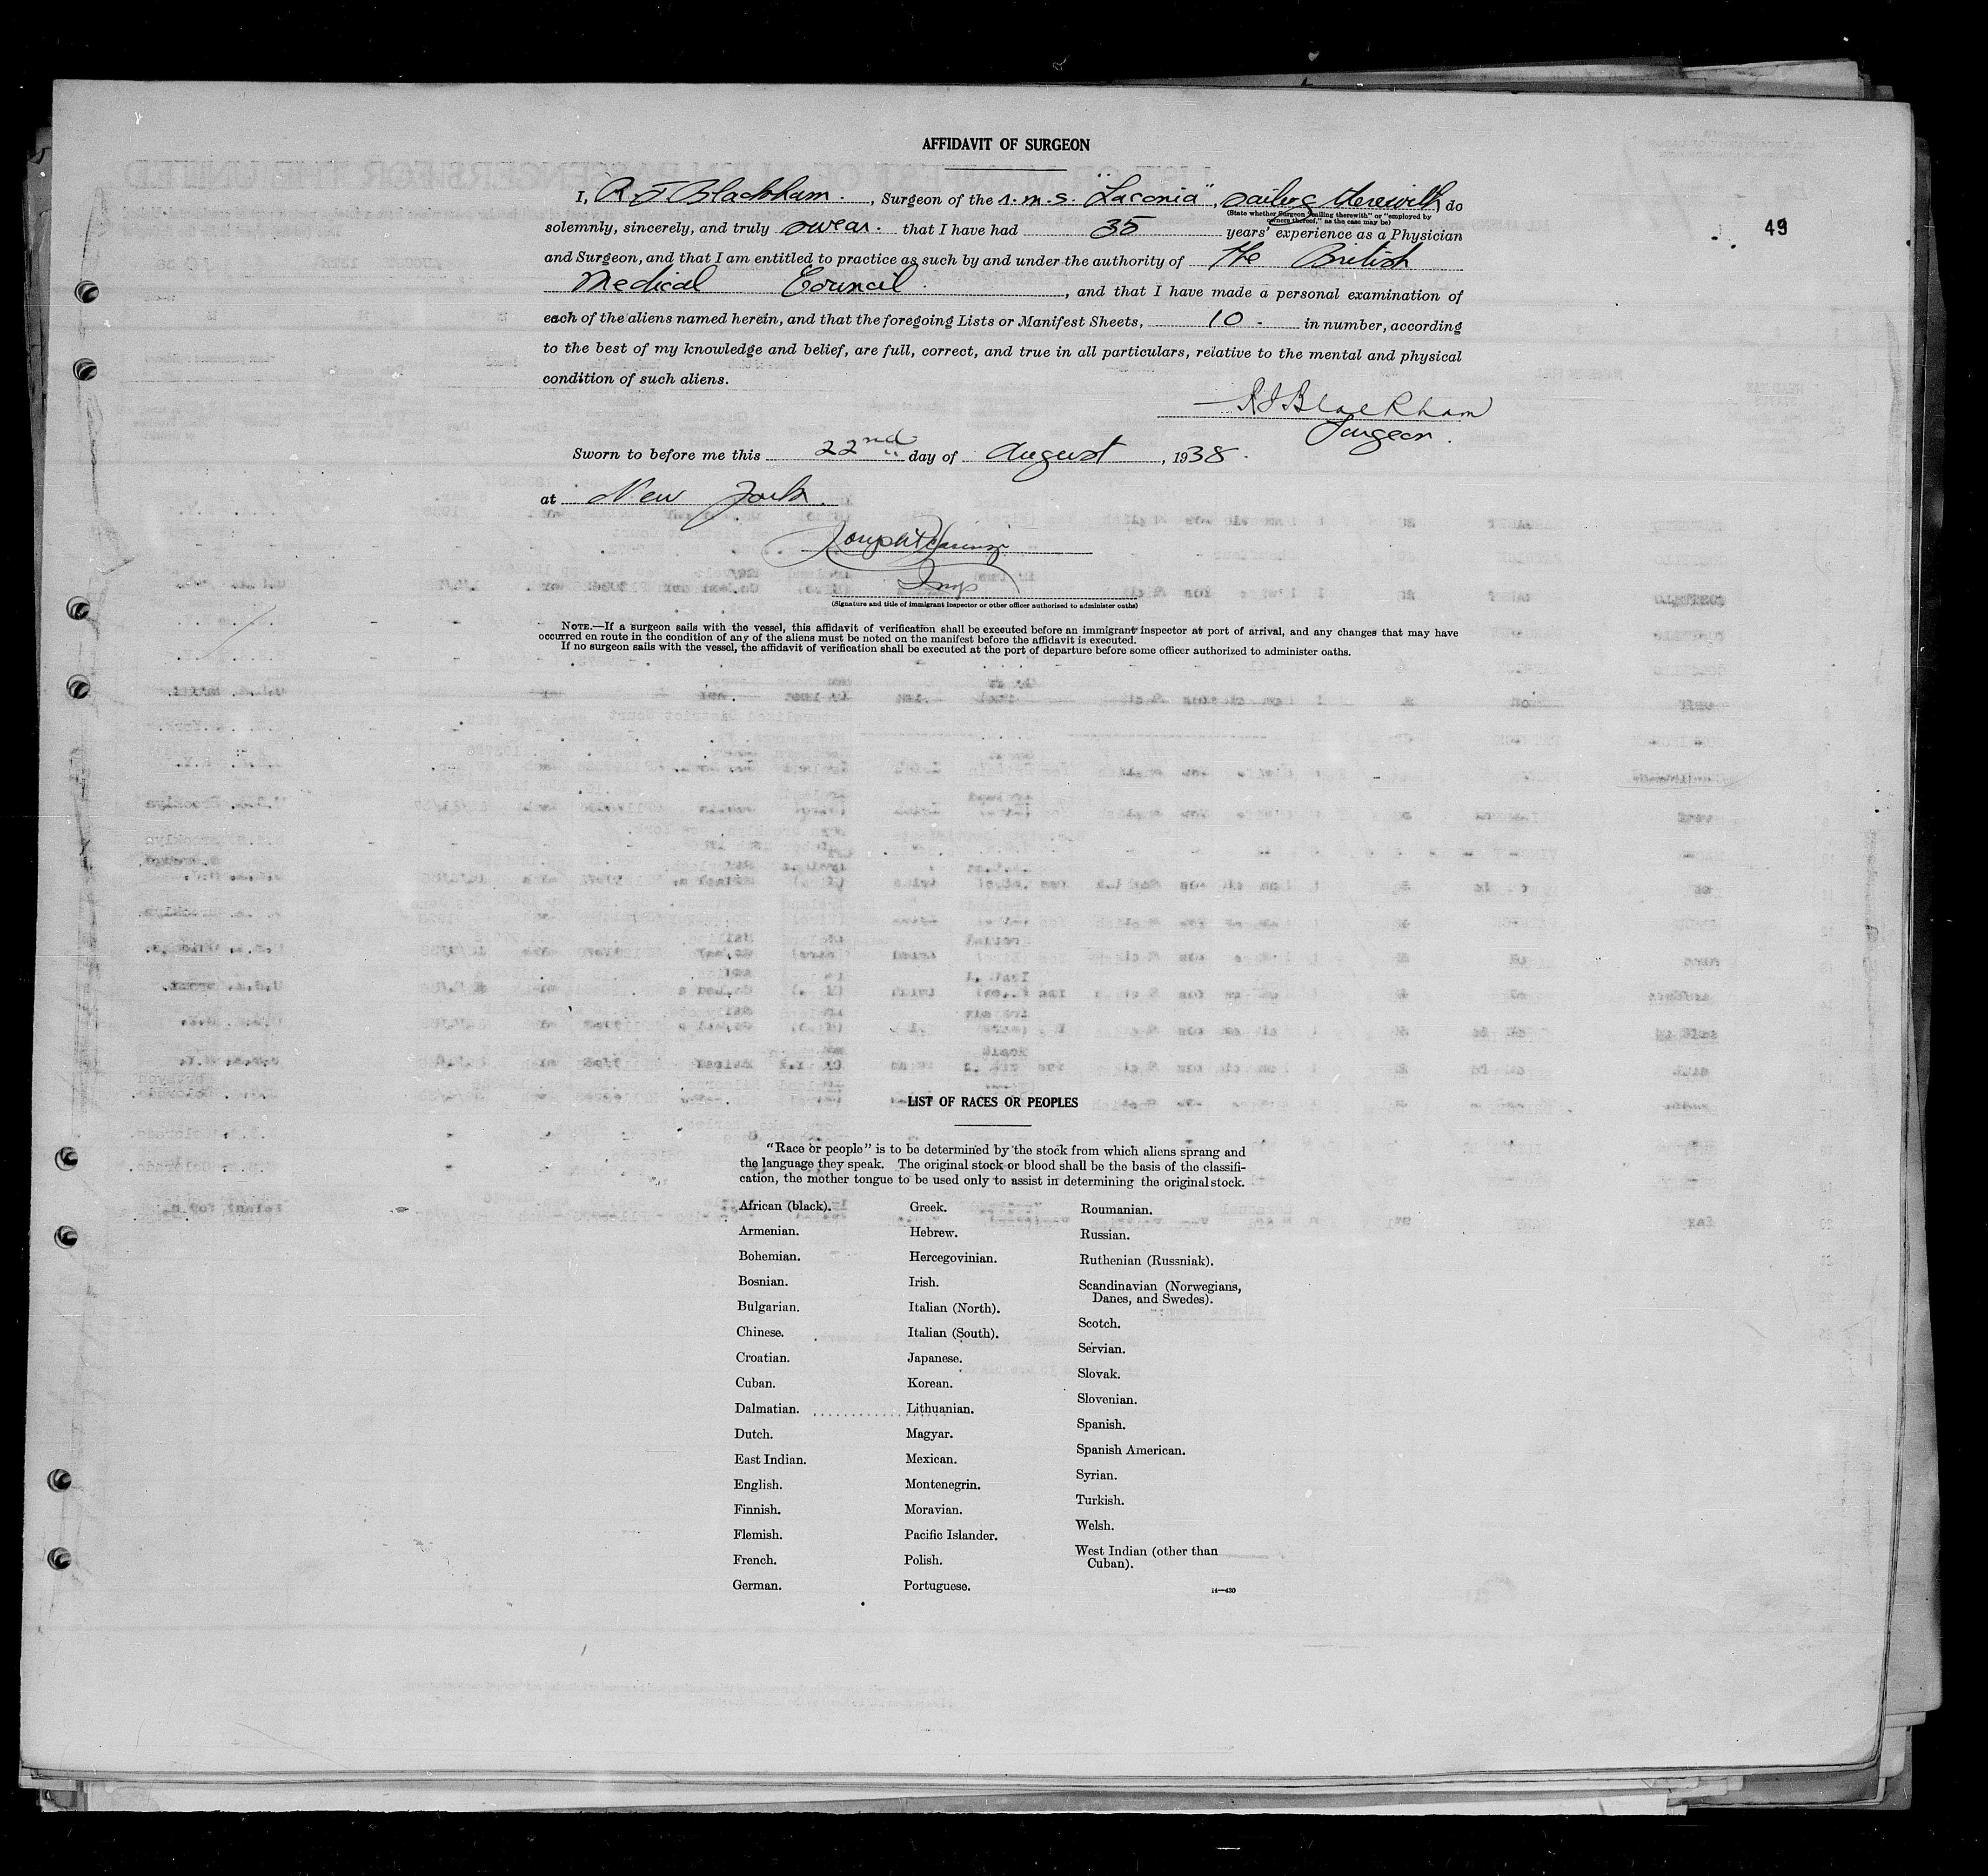 AFFIDAVIT OF SURGEON
I, R J Blackham., Surgeon of the r.m.s. "Laconia", sailing therewith, do
(State whether Surgeon "sailing therewith" or "employed by
owners thereof," as the case may be)
49
solemnly, sincerely, and truly swear. that I have had 35 years' experience as a Physician
and Surgeon, and that I am entitled to practice as such by and under the authority of the British
Medical Council., and that I have made a personal examination of
each of the aliens named herein, and that the foregoing Lists or Manifest Sheets, 10. in number, according
to the best of my knowledge and belief, are full, correct, and true in all particulars, relative to the mental and physical
condition of such aliens.
R J Blackham
Surgeon.
Sworn to before me this 22nd day of August, 1938.
at New York.
Joseph
Insp
(Signature and title of immigrant inspector or other officer authorized to administer oaths)
NOTE.—If a surgeon sails with the vessel, this affidavit of verification shall be executed before an immigrant inspector at port of arrival, and any changes that may have
occurred en route in the condition of any of the aliens must be noted on the manifest before the affidavit is executed.
If no surgeon sails with the vessel, the affidavit of verification shall be executed at the port of departure before some officer authorized to administer oaths.
LIST OF RACES OR PEOPLES
"Race or people" is to be determined by the stock from which aliens sprang and
the language they speak. The original stock or blood shall be the basis of the classifi-
cation, the mother tongue to be used only to assist in determining the original stock.
African (black).
Armenian.
Bohemian.
Bosnian.
Bulgarian.
Chinese.
Croatian.
Cuban.
Dalmatian.
Dutch.
East Indian.
English.
Finnish.
Flemish.
French.
German.
Greek.
Hebrew.
Hercegovinian.
Irish.
Italian (North).
Italian (South).
Japanese.
Korean.
Lithuanian.
Magyar.
Mexican.
Montenegrin.
Moravian.
Pacific Islander.
Polish.
Portuguese.
Roumanian.
Russian.
Ruthenian (Russniak).
Scandinavian (Norwegians,
Danes, and Swedes).
Scotch.
Servian.
Slovak.
Slovenian.
Spanish.
Spanish American.
Syrian.
Turkish.
Welsh.
West Indian (other than
Cuban).
14—430